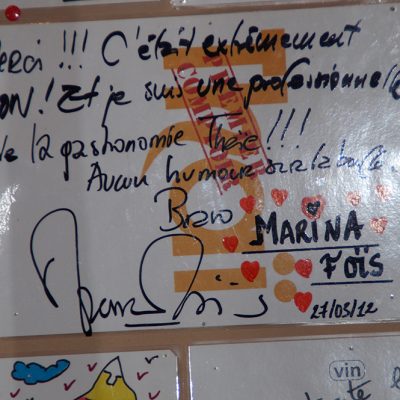 Merci !!! C'était extrêmement
BON! Et je suis une professionnelle
de la gastronomie Thaïe!!!
Aucun humour sur la bouffe.
Bravo
MARINA
FOÏS
27/05/12
PREMIER
COMPTOIR
vin